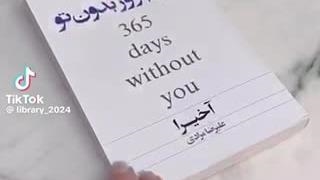 روز بدون تو
365
days
without
you
آخیرا
علیرضا بیادی
TikTok
@ library_2024